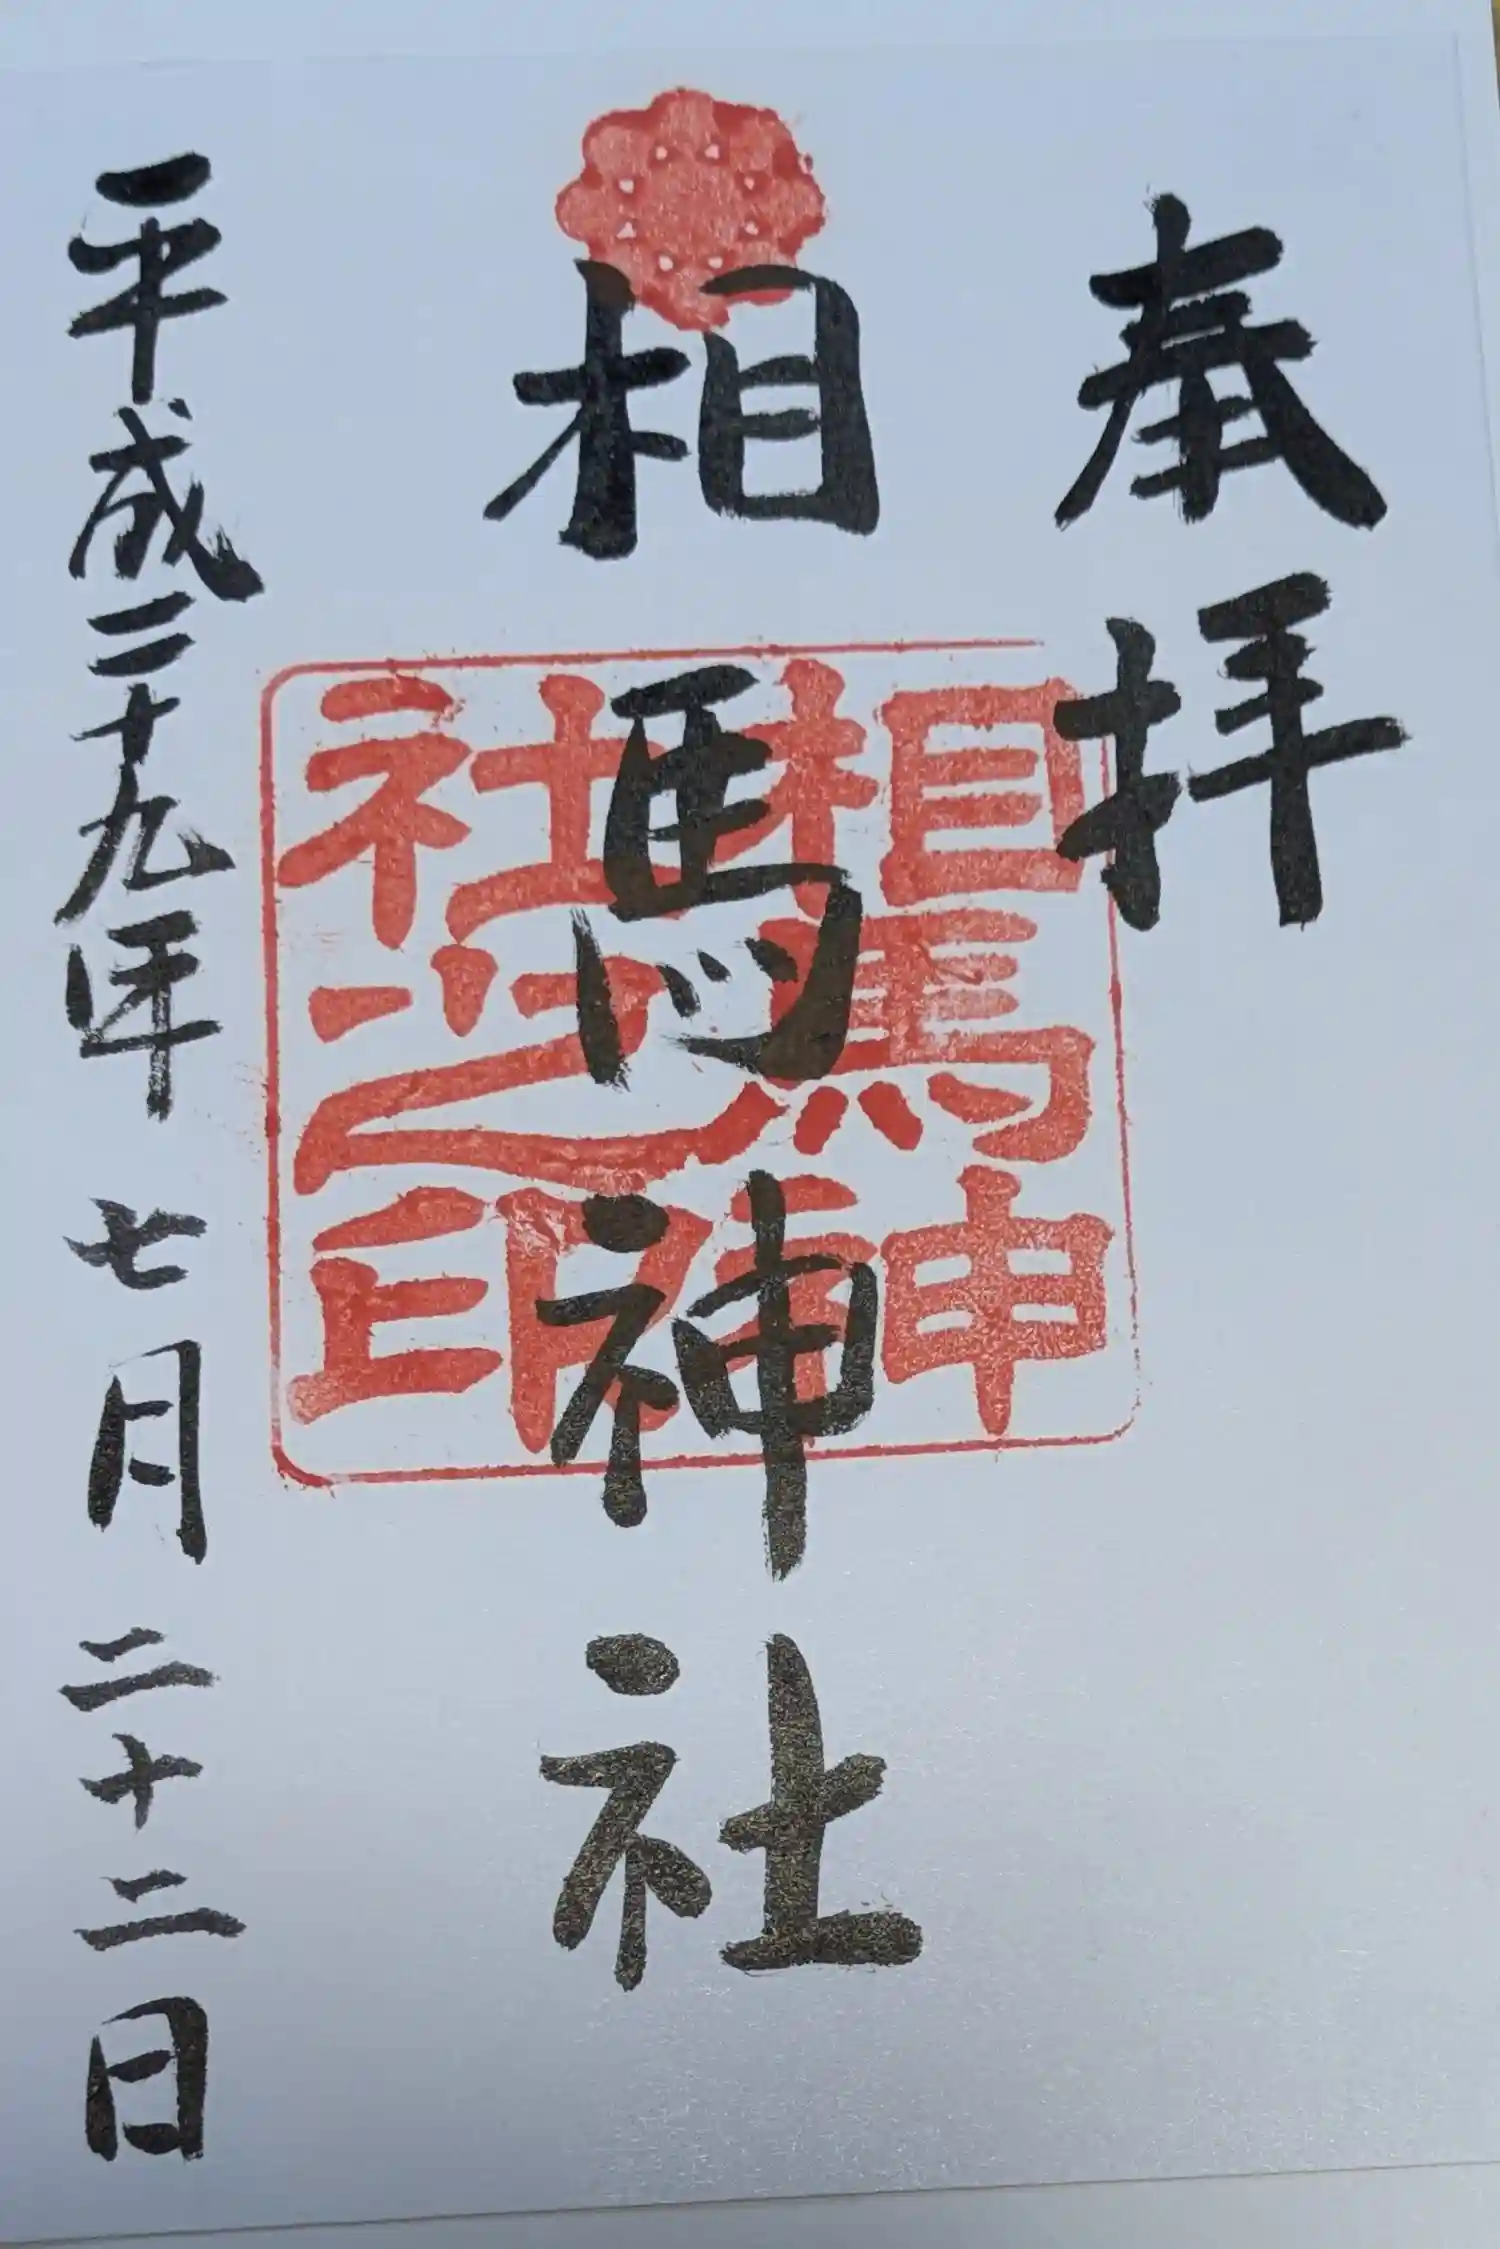 奉拝
相馬神社
相馬神
社之印
平成二十九年 七月 二十二日